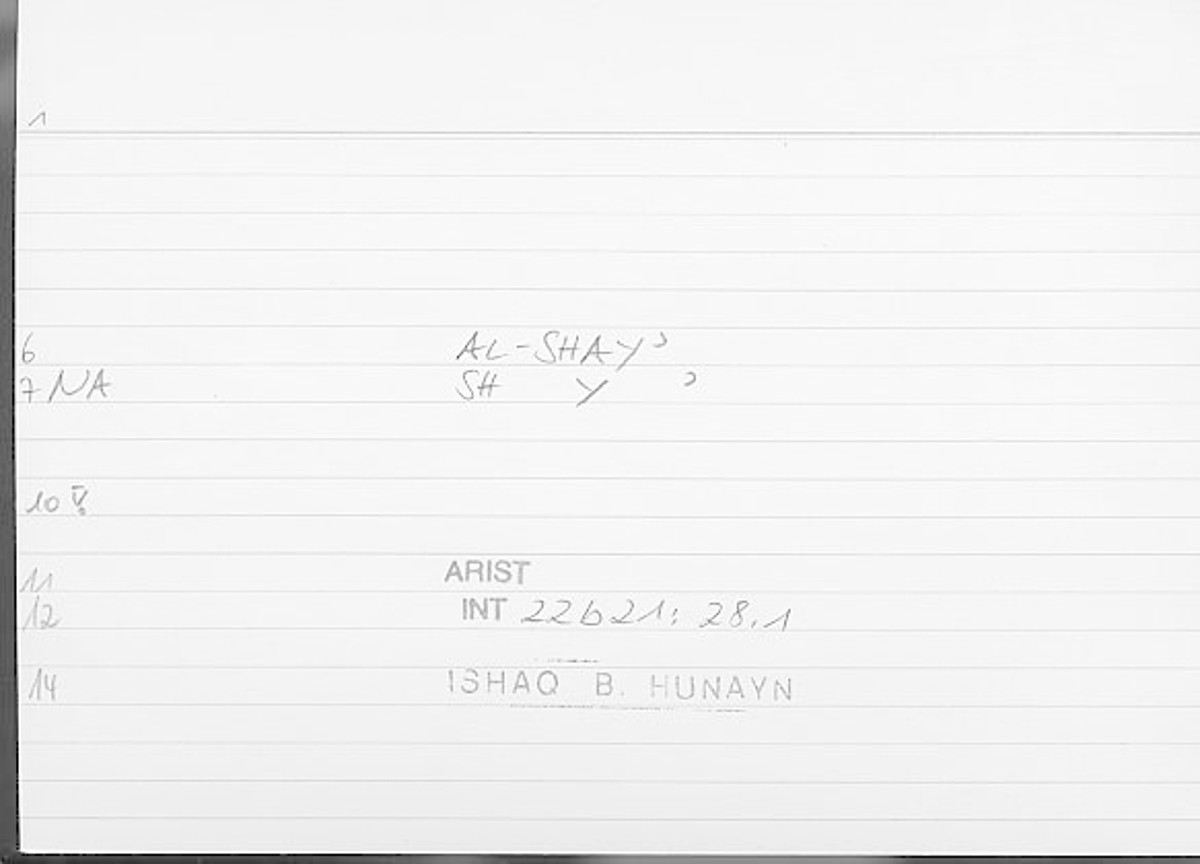 1
6 AL-SHAYʾ
7 NA SH Y ʾ
10 V.
11 ARIST
12 INT 22b21; 28.1
14 ISHAQ B. HUNAYN